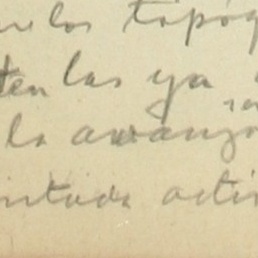 los topóg
ten las ya
la avanza
ntada acti